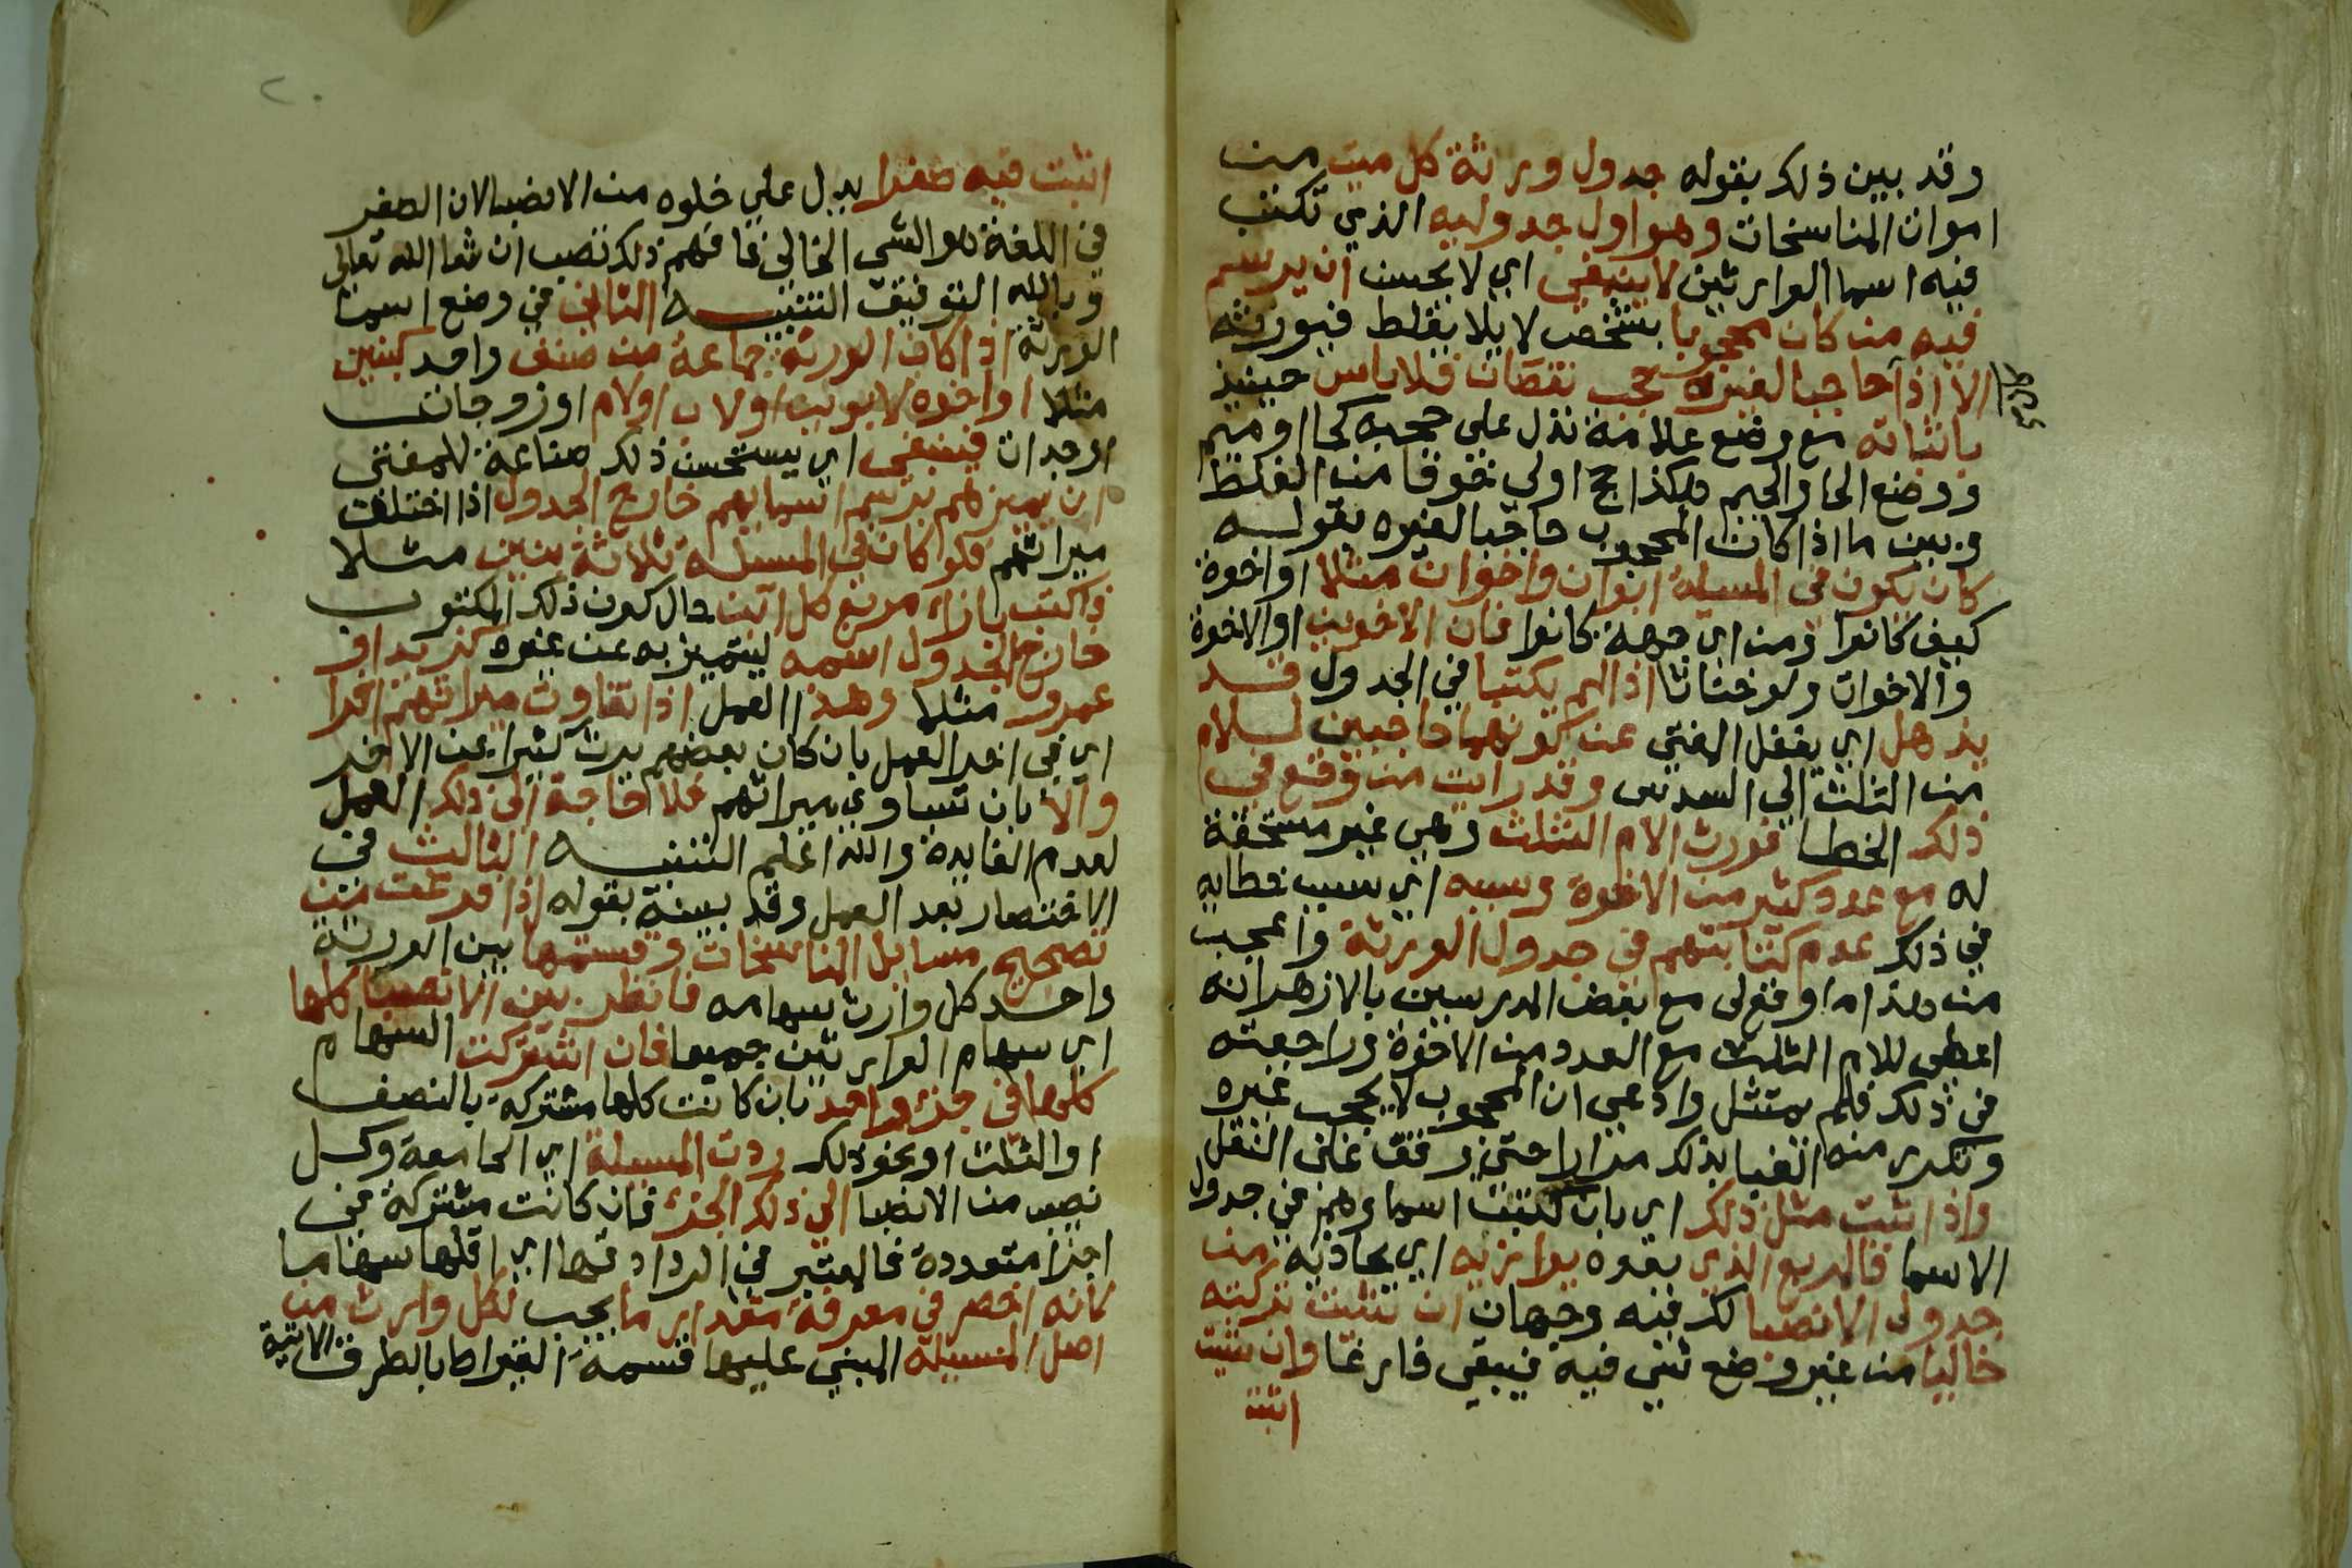 وقد بين ذلك بقوله جدول ورثة كل ميت من
اموات المناسخات وهو اول جدوليه الذي تكتب
فيه اسما الوارثين لا ينبغي اي لا يحسن ان يرسم
فيه من كان محجوبا بشخص لا يلا يغلط فيورثه
الا اذا حاجبا لغيره حجب نقصان فلا باس حينيذ
باثباته مع وضع علامة تدل على حجبه كحا او ميم
ووضع الحا والجيم هكذا حج اولي خوفا من الغلط
وبين ما اذا كان المحجوب حاجبا لغيره بقوله
كان يكون في المسيلة ابوان واخوان مثلا او اخوة
كيف كانوا ومن اي جهة كانوا فان الاخوين او الاخوة
والاخوات ولو خناثا اذا لم يكتبا في الجدول قد
يذهل اي يغفل المفتي عن كونهما حاجبين للام
من الثلث الي السدس وقد رايت من وقع في
ذلك الخطا فورث الام الثلث وهي غير مستحقة
له مع عدد كثير من الاخوة وسببه اي سبب خطايه
في ذلك عدم كتابتهم في جدول الورثة واعجب
من هذا ما وقع لي مع بعض المدرسين بالازهر انه
اعطى للام الثلث مع العدد من الاخوة وراجعته
في ذلك فلم يمتثل وادعي ان المحجوب لا يحجب غيره
وتكرر منه الفتيا بذلك مرارا حتي وقف على النقل
واذا ثبت مثل ذلك اي بان كتبت اسماوهم في جدول
الاسما فالمربع الذي بعده يوازيه اي يحاذيه من
جدول الانصبا لك فيه وجهان ان شيت تركته
خاليا من غير وضع شي فيه فيبقى فارغا وان شيت
اثبت
اثبت فيه صفرا يدل علي خلوه من الانصبا لان الصفر
في اللغة هو الشي الخالي فافهم ذلك تصب ان شا الله تعالى
وبالله التوفيق التنبيه الثاني في وضع اسما
الورثة اذا كان الورثة جماعة من صنف واحد كبنين
مثلا او اخوه لابوين او لاب او لام او زوجات
او جدات فينبغي اي يستحسن ذلك صناعة للمفتي
ان يميزهم برسم اسمايهم خارج الجدول اذا اختلف
ميراثهم فلو كان في المسيلة ثلاثة بنين مثلا
فاكتب بازاء مربع كل ابن حال كون ذلك المكتوب
خارج الجدول اسمه ليتميز به عن غيره كزيد او
عمرو مثلا وهذا العمل اذا تفاوت ميراثهم اخرا
اي في اخر العمل بان كان بعضهم يرث كثيرا عن الاخر
والا بان تساوي ميراثهم فلا حاجة الى ذلك العمل
لعدم الفايدة والله اعلم التنبيه الثالث في
الاختصار بعد العمل وقد بينه بقوله اذا فرغت من
تصحيح مسايل المناسخات وقسمتها بين الورثة
واخذ كل وارث سهامه فانظر بين الانصبا كلها
اي سهام الوارثين جميعا فان اشتركت السهام
كلها في جزء واحد بان كانت كلها مشتركة بالنصف
او الثلث او نحو ذلك ردت المسيلة اي الجامعة وكل
نصيب من الانصبا الي ذلك الجزء فان كانت مشتركة في
اجزا متعددة فالمعتبر في الرد ادقها اي اقلها سهاما
لانه اخصر في معرفة مقدار ما يجب لكل وارث من
اصل المسيلة المبني عليها قسمة القيراط بالطرف الاتية